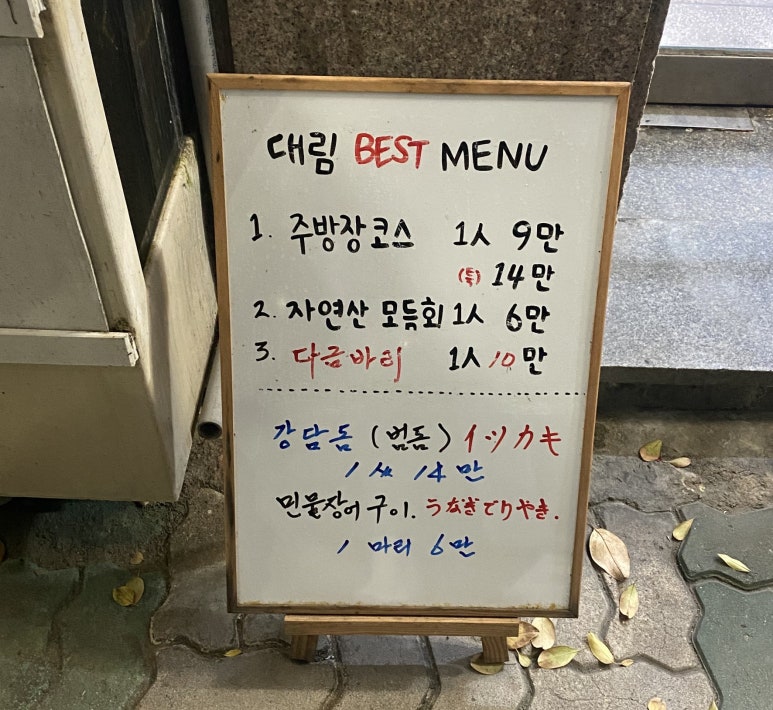 대림 BEST MENU
1. 주방장코스 1人 9만
(특) 14만
2. 자연산 모듬회 1人 6만
3. 다금바리 1人 10만
강담돔 (범돔) イツカキ
1人 14만
민물장어구이. うなぎてりやき.
1 마리 6만